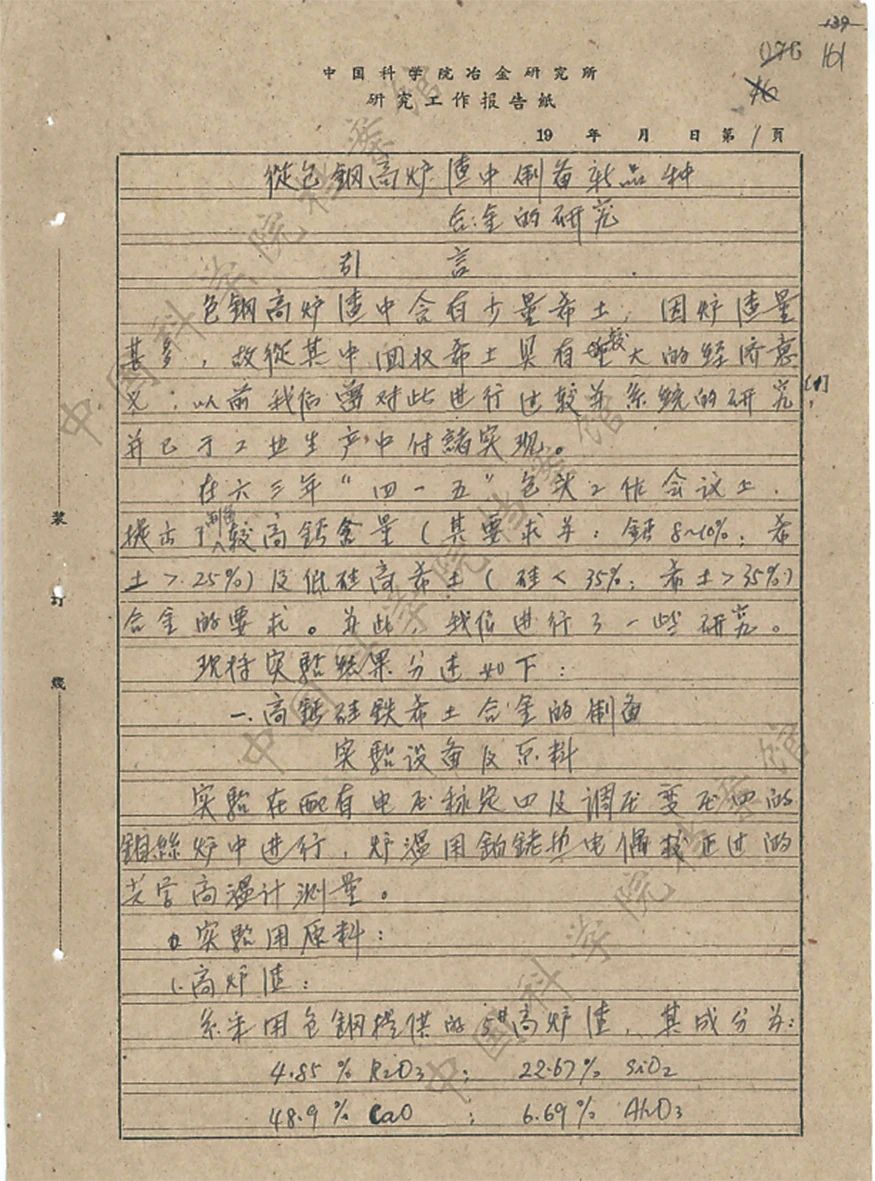 139
076 161
76
中国科学院冶金研究所
研究工作报告紙
19 年 月 日 第 1 頁
從包鋼高炉渣中制备新品种
合金的研究
引 言
包鋼高炉渣中含有少量希土，因炉渣量
甚多，故從其中回收希土具有較大的經济意
义；以前我们曾对此进行过较为系統的研究[1]，
并已于工业生产中付諸实现。
在六三年“四一五”包头工作会议上，
提出了制备较高鈣含量（其要求为：鈣8~10%；希
土>25%）及低硅高希土（硅<35%；希土>35%）
合金的要求。为此，我们进行了一些研究。
现将实驗結果分述如下：
一、高鈣硅鉄希土合金的制备
实驗设备及原料
实驗在配有电压稳定四及调压变压四的
鉬絲炉中进行，炉溫用鉑銠热电偶校正过的
光学高溫计測量。
实驗用原料：
1.高炉渣：
系采用包鋼提供的5#高炉渣，其成分为：
4.85% R2O3； 22.67% SiO2
48.9% CaO ； 6.69% Al2O3
装
订
线
中国科学院档案馆
中国科学院档案馆
中国科学院档案馆